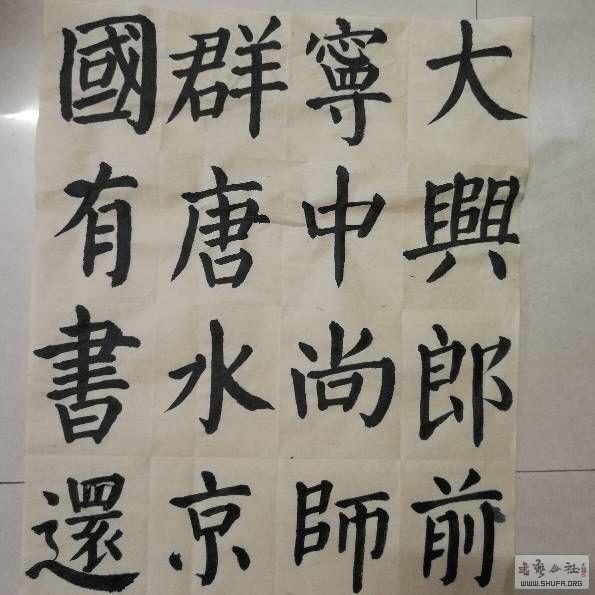 大興郎前
寧中尚師
群唐水京
國有書還
WWW.SHUFA.ORG